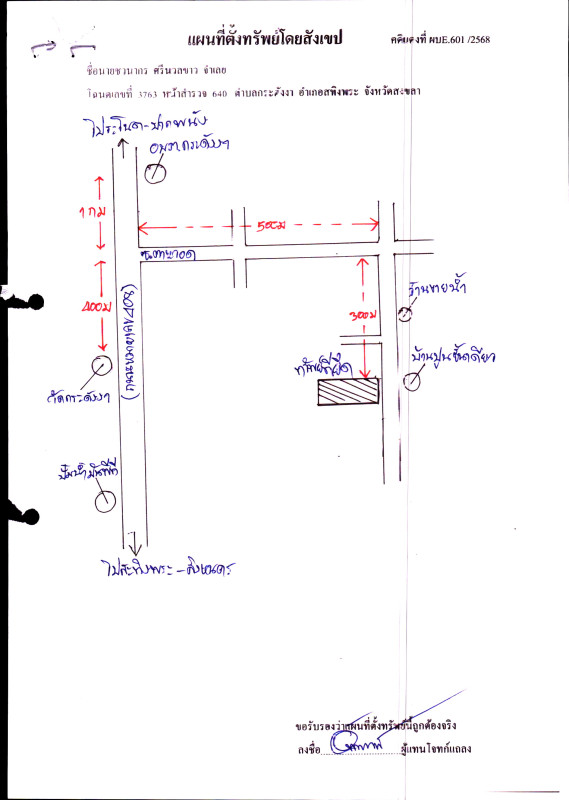 แผนที่ตั้งทรัพย์โดยสังเขป
คดีแดงที่ ผบE.601 /2568
ชื่อนายชวนากร ศรีนวลขาว จำเลย
โฉนดเลขที่ 3763 หน้าสำรวจ 640 ตำบลกระดังงา อำเภอสทิงพระ จังหวัดสงขลา
ไประโนด-ปากพนัง
อบต.กระดังงา
1 กม
500ม
400ม
300ม
(ถนนหมายเลข408)
ร้านขายน้ำ
บ้านปูนชั้นเดียว
ทรัพย์ที่ยึด
วัดกระดังงา
ปั๊มน้ำมันพีที
ไปสะทิงพระ-สิงหนคร
ขอรับรองว่าแผนที่ตั้งทรัพย์นี้ถูกต้องจริง
ลงชื่อ ผู้แทนโจทก์แถลง